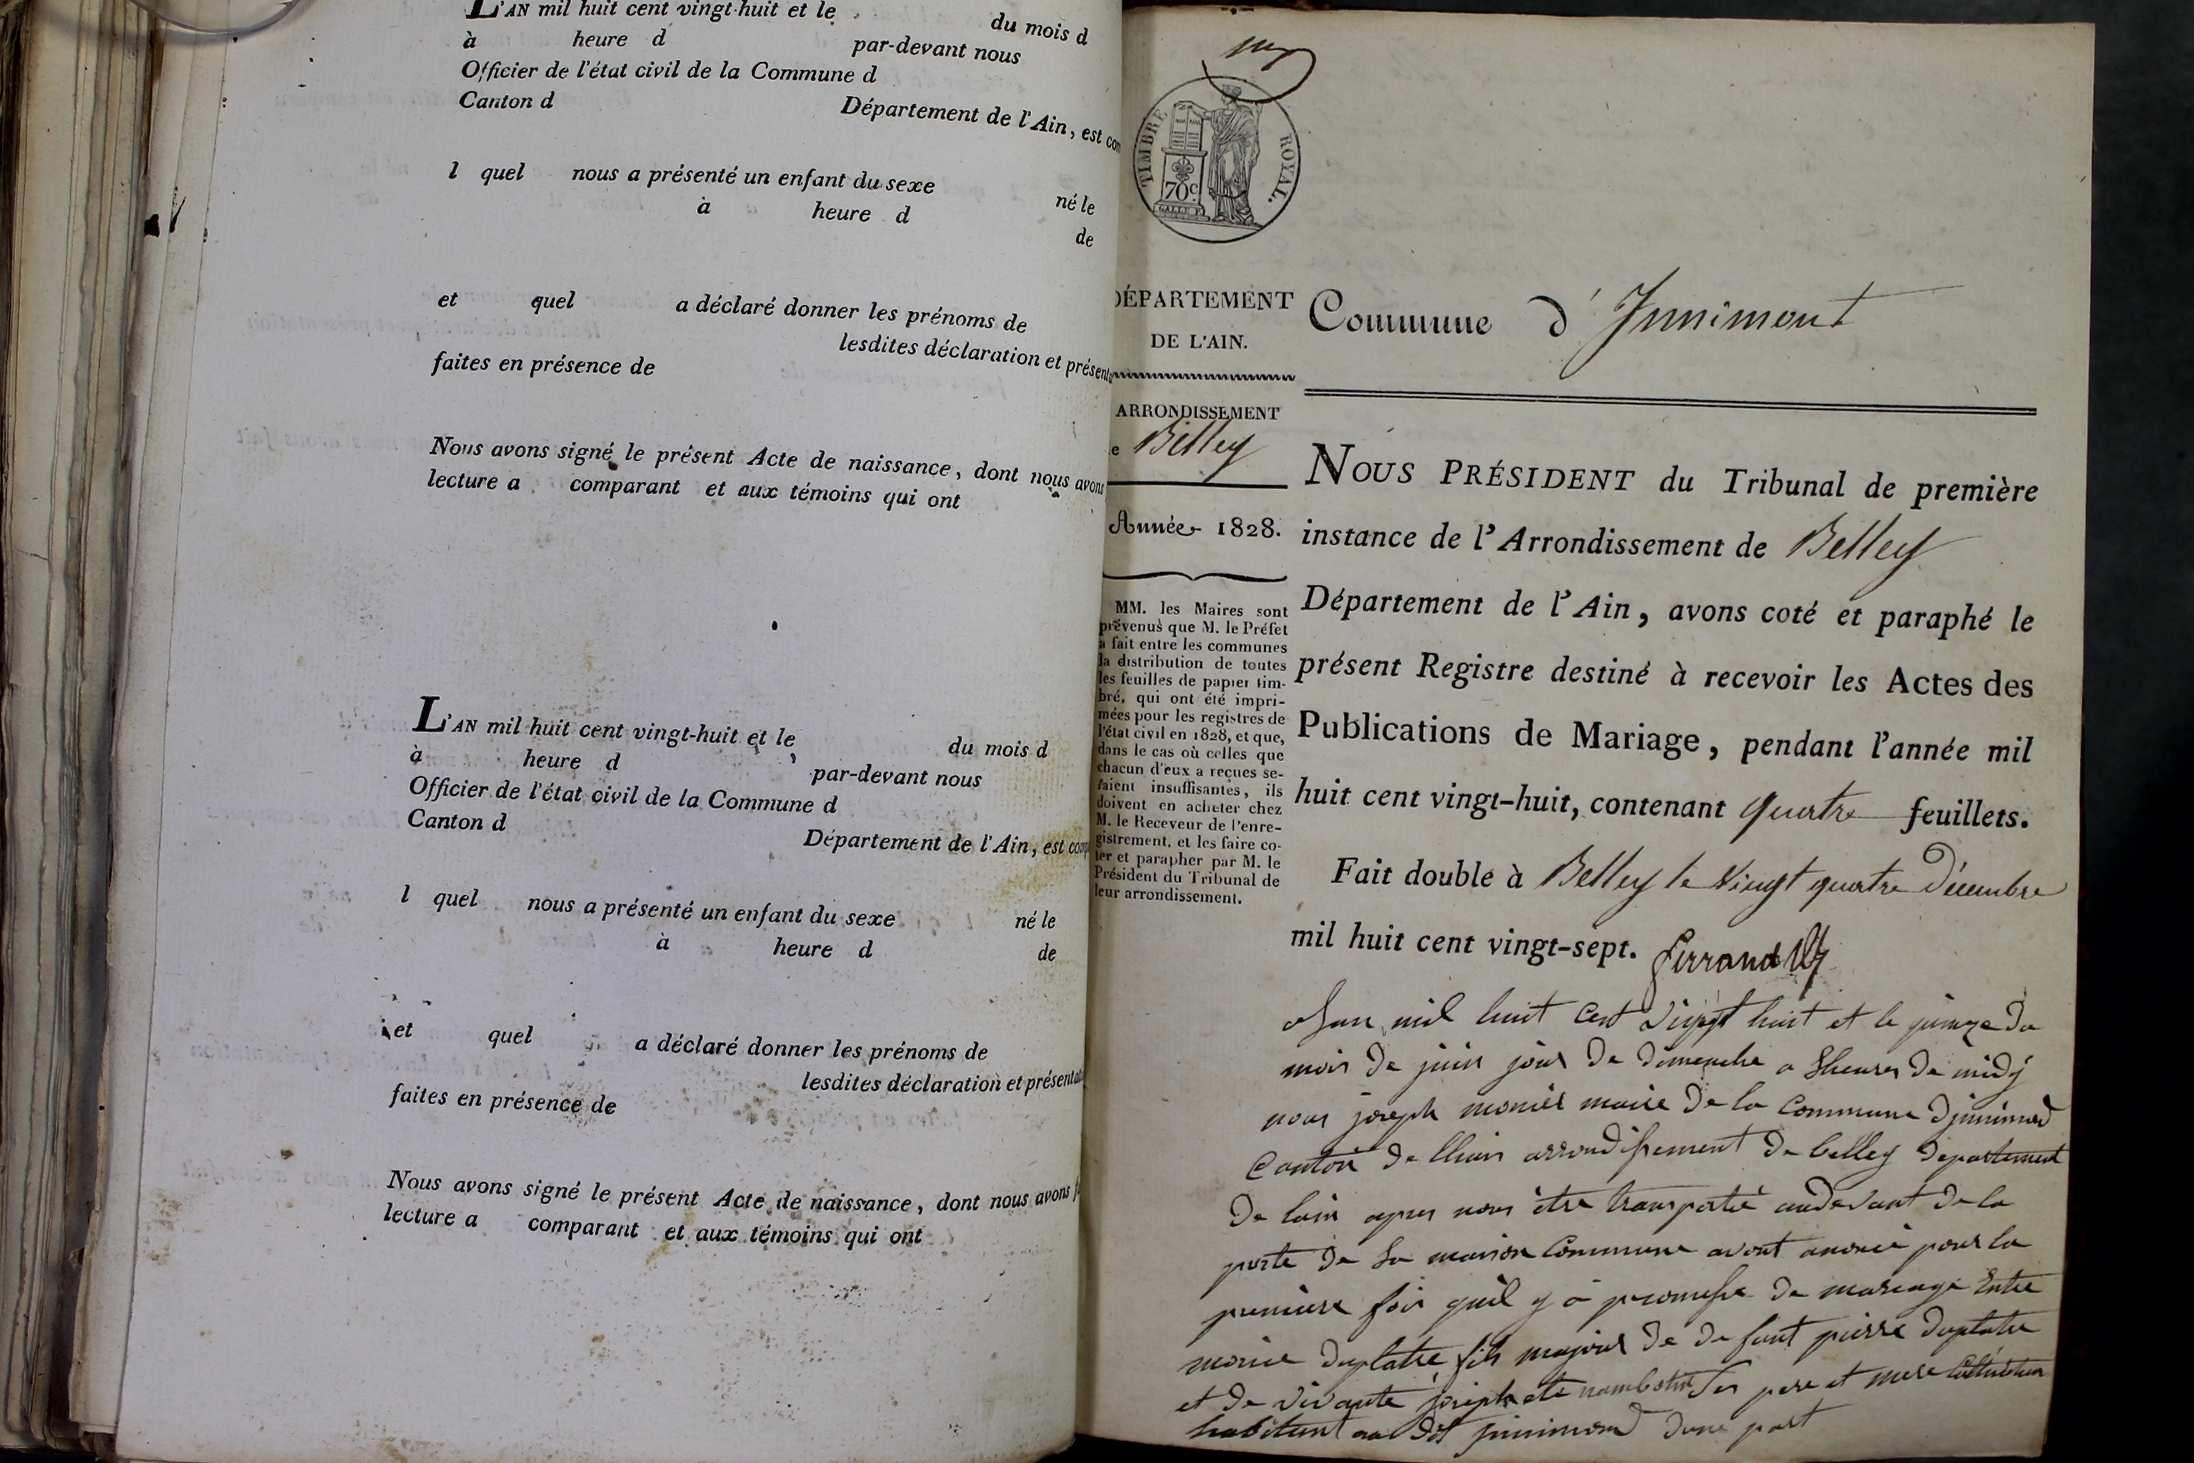 L'AN mil huit cent vingt-huit et le du mois d
à heure d par-devant nous
Officier de l'état civil de la Commune d
Canton d Département de l'Ain, est com
l quel nous a présenté un enfant du sexe né le
à heure d de
et quel a déclaré donner les prénoms de
lesdites déclaration et présenta
faites en présence de
Nous avons signé le présent Acte de naissance, dont nous avons
lecture a comparant et aux témoins qui ont
L'AN mil huit cent vingt-huit et le du mois d
à heure d par-devant nous
Officier de l'état civil de la Commune d
Canton d Département de l'Ain, est comp
l quel nous a présenté un enfant du sexe né le
à heure d de
et quel a déclaré donner les prénoms de
lesdites déclaration et présentat
faites en présence de
Nous avons signé le présent Acte de naissance, dont nous avons f
lecture a comparant et aux témoins qui ont
TIMBRE ROYAL.
70c
DÉPARTEMENT
DE L'AIN.
ARRONDISSEMENT
e Belley
Année 1828.
MM. les Maires sont
prévenus que M. le Préfet
a fait entre les communes
la distribution de toutes
les feuilles de papier tim-
bré, qui ont été impri-
mées pour les registres de
l'état civil en 1828, et que,
dans le cas où celles que
chacun d'eux a reçues se-
raient insuffisantes, ils
doivent en acheter chez
M. le Receveur de l'enre-
gistrement, et les faire co-
ter et parapher par M. le
Président du Tribunal de
leur arrondissement.
Commune d'Innimont
NOUS PRÉSIDENT du Tribunal de première
instance de l'Arrondissement de Belley
Département de l'Ain, avons coté et paraphé le
présent Registre destiné à recevoir les Actes des
Publications de Mariage, pendant l'année mil
huit cent vingt-huit, contenant quatre feuillets.
Fait double à Belley le vingt quatre Décembre
mil huit cent vingt-sept. Ferrand
Lan mil huit cent vingt huit et le quinze du
mois de juin jour de dimanche a heures de midy
nous joseph monier maire de la Commune
Canton de lhuis arrondissement de belley departement
de lain apres nous être transporté audevant de la
porte de la maison Commune avont anoncé pour la
premiere fois quil y a promesse de mariage Entre
duplatre fils majeur de defunt pierre duplatre
et de vivante josephete ses pere et mere Cultivateur
habitant au dit dune part